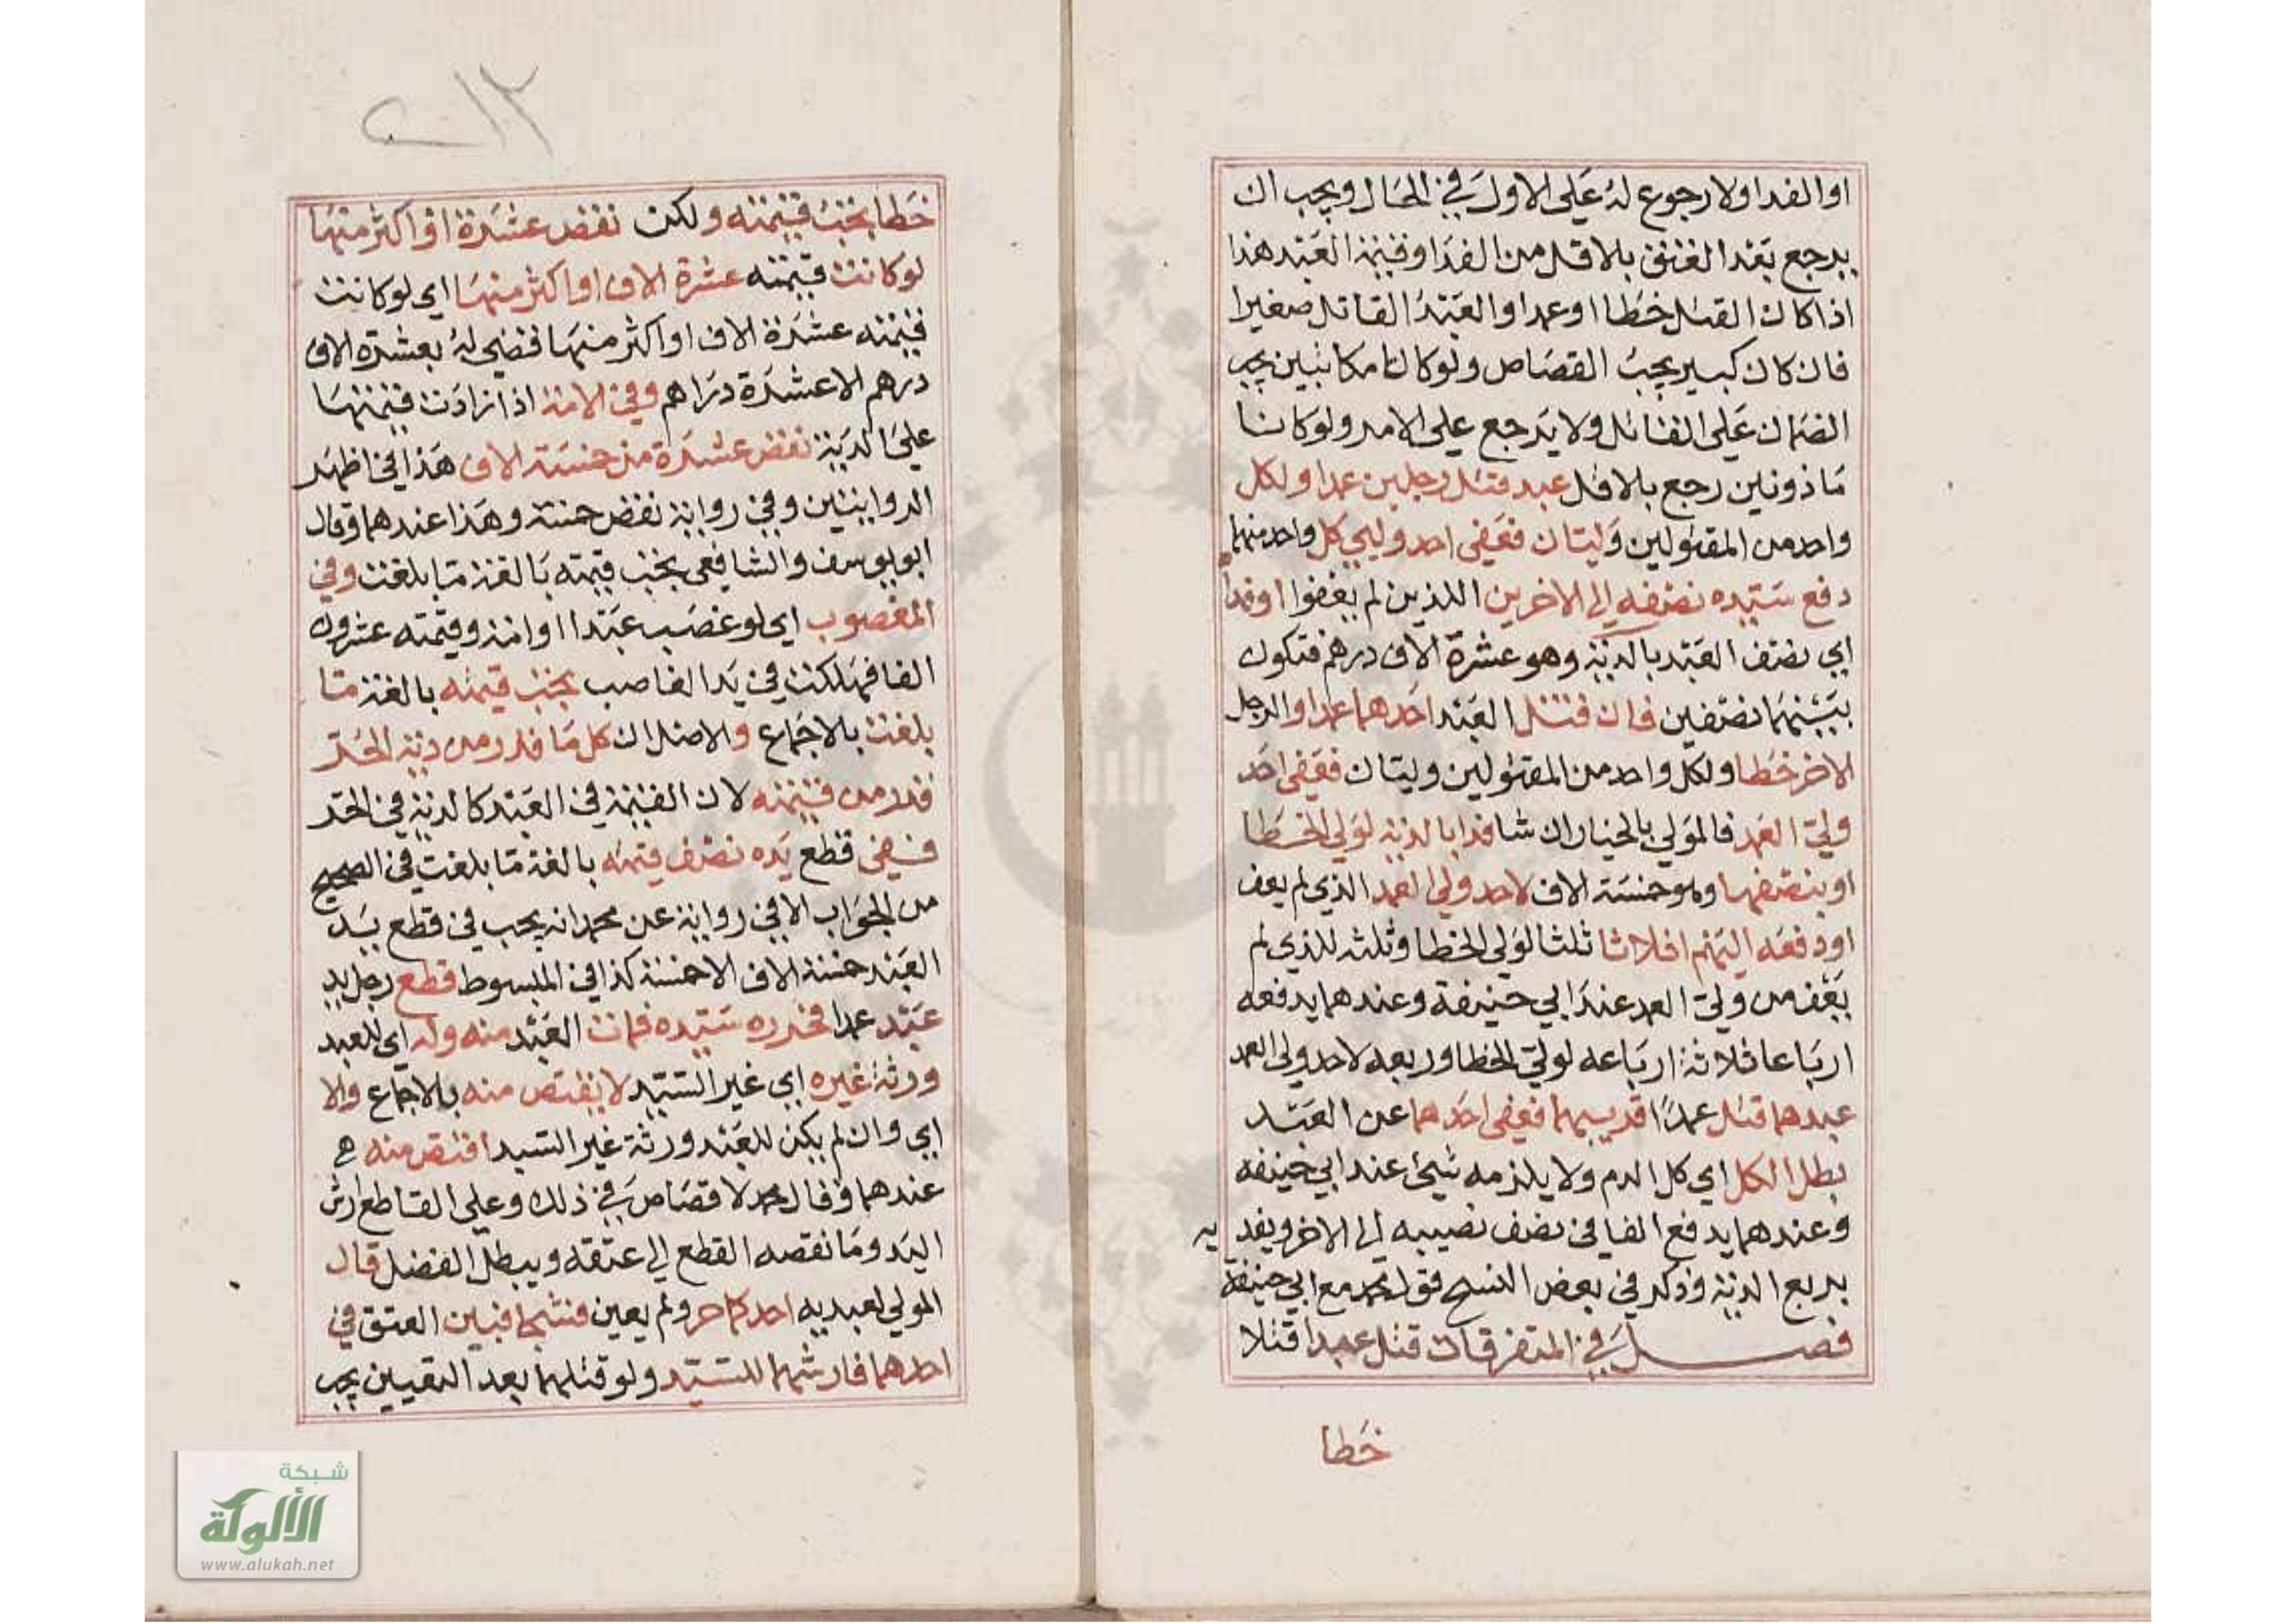 او الفدا ولا رجوع له على الاول في الحال ويجب ان
يرجع بعد العتق بالاقل من الفدا وقيمة العبد هذا
اذا كان القتل خطا او عمدا والعبد القاتل صغيرا
فان كان كبير يجب القصاص ولو كانا مكاتبين يجب
الضمان على القاتل ولا يرجع على الامر ولو كانا
ماذونين رجع بالاقل عبد قتل رجلين عمدا ولكل
واحد من المقتولين وليتان فعفى احد وليي كل واحد منهما
دفع سيده نصفه الى الاخرين اللذين لم يعفوا او فدا
اي نصف العبد بالدية وهو عشرة الاف درهم فتكون
بينهما نصفين فان قتل العبد احدهما عمدا والرجل
الاخر خطا ولكل واحد من المقتولين وليتان فعفى احد
وليي العمد فالمولي بالخيار ان شا فدا بالدية لولي الخطا
او بنصفها وهو خمسة الاف لاحد ولي العمد الذي لم يعف
او دفعه اليهم اثلاثا ثلثا لولي الخطا وثلثه للذي لم
يعف من ولي العمد عند ابي حنيفة وعندهما يدفعه
ارباعا ثلاثة ارباعه لولي الخطا وربعه لاحد ولي العمد
عبدهما قتل عمدا قريبهما فعفى احدهما عن العبد
بطل الكل اي كل الدم ولا يلزمه شيئ عند ابي حنيفه
وعندهما يدفع العافى نصف نصيبه الى الاخر ويفديه
بربع الدية وذكر في بعض النسخ قول محمد مع ابي حنيفة
فصل في المتفرقات قتل عبدا قتلا
خطا
٢١٢
خطا يجب قيمته ولكن نقض عشرة او اكثر منها
لو كانت قيمته عشرة الاف او اكثر منها اي لو كانت
قيمته عشرة الاف او اكثر منها قضي له بعشرة الاف
درهم الا عشرة دراهم وفي الامة اذا زادت قيمتها
على الدية نقض عشرة من خمسة الاف هذا في اظهر
الروايتين وفي رواية نقض خمسة وهذا عندهما وقال
ابو يوسف والشافعي يجب قيمته بالغة ما بلغت وفي
المغصوب اي لو غصب عبدا او امة وقيمته عشرون
الفا فهلكت في يد الغاصب يجب قيمته بالغة ما
بلغت بالاجماع والاصل ان كل ما قدر من دية الحر
قدر من قيمته لان القيمة في العبد كالدية في الحر
ففي قطع يده نصف قيمته بالغة ما بلغت في الصحيح
من الجواب الا في رواية عن محمد انه يجب في قطع يد
العبد خمسة الاف الا خمسة كذا في المبسوط قطع رجل يد
عبد عمدا فحرره سيده فمات العبد منه وله اي للعبد
ورثة غيره اي غير السيد لا يقتص منه بالاجماع والا
اي وان لم يكن للعبد ورثة غير السيد اقتص منه
عندهما وقال محمد لا قصاص في ذلك وعلى القاطع ارش
اليد وما نقصه القطع الى عتقه ويبطل الفضل قال
المولي لعبديه احدكما حر ولم يعين فشجا فبين العتق في
احدهما فارشهما للسيد ولو قتلهما بعد التعيين يجب
شبكة
الألوكة
www.alukah.net